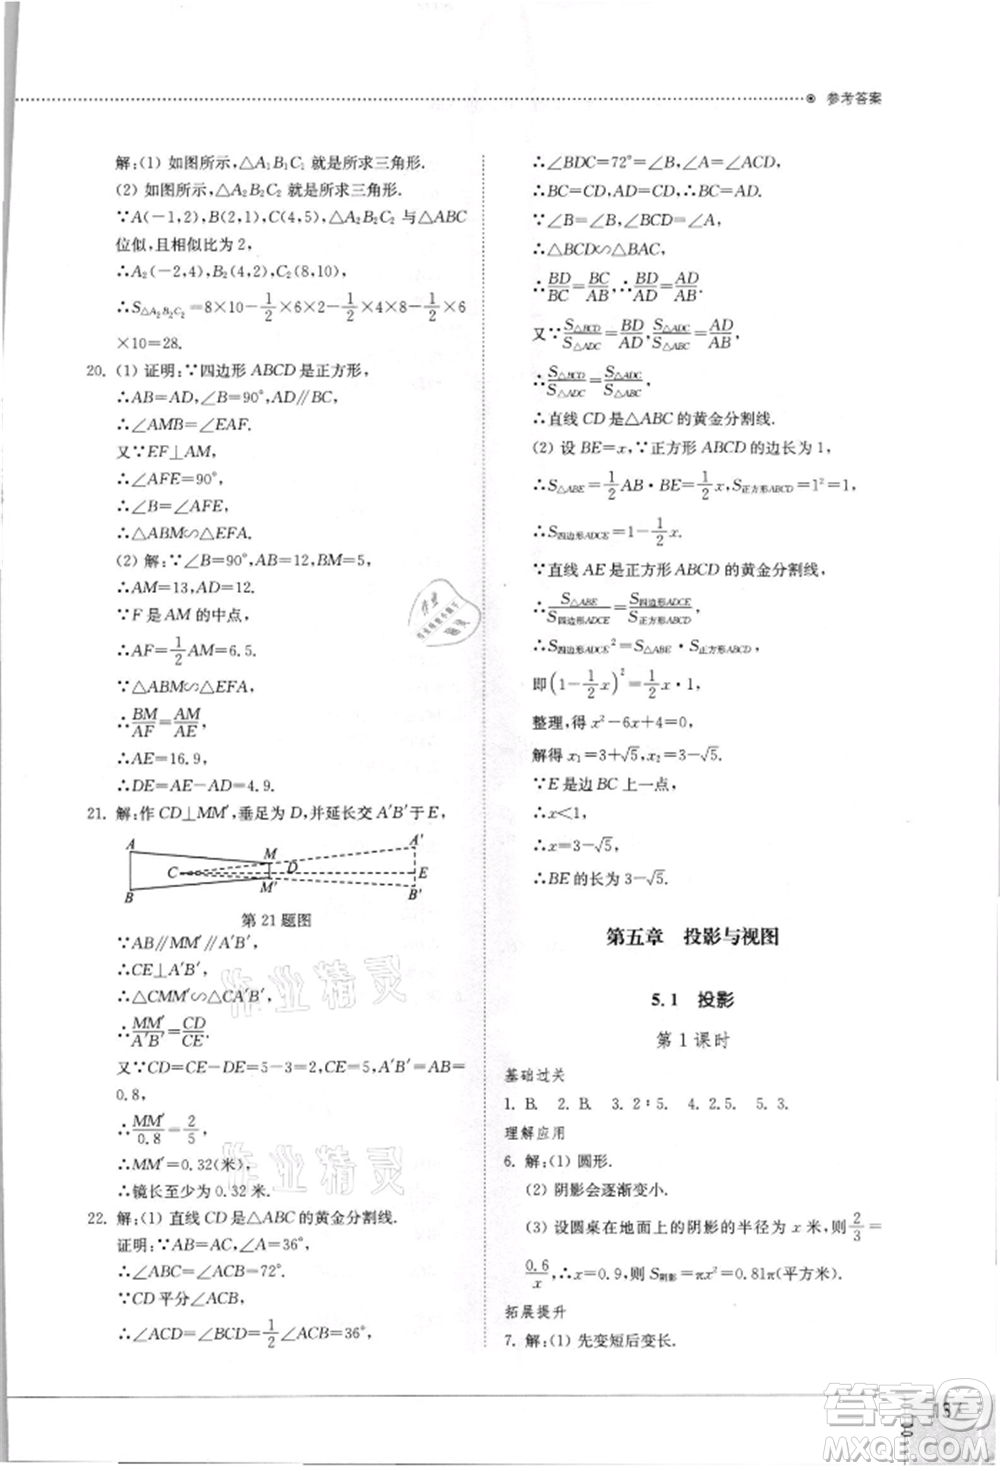 参考答案
解:(1) 如图所示,△A₁B₁C₁ 就是所求三角形.
(2) 如图所示,△A₂B₂C₂ 就是所求三角形.
∵A(-1,2),B(2,1),C(4,5),△A₂B₂C₂ 与△ABC
位似,且相似比为 2,
∴A₂(-2,4),B₂(4,2),C₂(8,10),
∴S△A₂B₂C₂=8×10-1/2×6×2-1/2×4×8-1/2×6
×10=28.
20. (1) 证明:∵四边形 ABCD 是正方形,
∴AB=AD,∠B=90°,AD∥BC,
∴∠AMB=∠EAF.
又∵EF⊥AM,
∴∠AFE=90°,
∴∠B=∠AFE,
∴△ABM∽△EFA.
(2) 解:∵∠B=90°,AB=12,BM=5,
∴AM=13,AD=12.
∵F 是 AM 的中点,
∴AF=1/2AM=6.5.
∵△ABM∽△EFA,
∴BM/AF=AM/AE,
∴AE=16.9,
∴DE=AE-AD=4.9.
21. 解:作 CD⊥MM′,垂足为 D,并延长交 A′B′于 E,
A M D A′
C E
B M′ B′
第 21 题图
∵AB∥MM′∥A′B′,
∴CE⊥A′B′,
∴△CMM′∽△CA′B′,
∴MM′/A′B′=CD/CE.
又∵CD=CE-DE=5-3=2,CE=5,A′B′=AB=
0.8,
∴MM′/0.8=2/5,
∴MM′=0.32(米),
∴镜长至少为 0.32 米.
22. 解:(1) 直线 CD 是△ABC 的黄金分割线.
证明:∵AB=AC,∠A=36°,
∴∠ABC=∠ACB=72°.
∵CD 平分∠ACB,
∴∠ACD=∠BCD=1/2∠ACB=36°,
∴∠BDC=72°=∠B,∠A=∠ACD,
∴BC=CD,AD=CD,∴BC=AD.
∵∠B=∠B,∠BCD=∠A,
∴△BCD∽△BAC,
∴BD/BC=BC/AB,∴BD/AD=AD/AB.
又∵S△BCD/S△ADC=BD/AD,S△ADC/S△ABC=AD/AB,
∴S△BCD/S△ADC=S△ADC/S△ABC,
∴直线 CD 是△ABC 的黄金分割线.
(2) 设 BE=x,∵正方形 ABCD 的边长为 1,
∴S△ABE=1/2AB·BE=1/2x,S正方形ABCD=1²=1,
∴S四边形ADCE=1-1/2x.
∵直线 AE 是正方形 ABCD 的黄金分割线,
∴S△ABE/S四边形ADCE=S四边形ADCE/S正方形ABCD,
∴S四边形ADCE²=S△ABE·S正方形ABCD,
即(1-1/2x)²=1/2x·1,
整理,得 x²-6x+4=0,
解得 x₁=3+√5,x₂=3-√5.
∵E 是边 BC 上一点,
∴x<1,
∴x=3-√5,
∴BE 的长为 3-√5.
第五章 投影与视图
5.1 投影
第 1 课时
基础过关
1. B. 2. B. 3. 2∶5. 4. 2.5. 5. 3.
理解应用
6. 解:(1) 圆形.
(2) 阴影会逐渐变小.
(3) 设圆桌在地面上的阴影的半径为 x 米,则 2/3=
0.6/x,∴x=0.9,则 S阴影=πx²=0.81π(平方米).
拓展提升
7. 解:(1) 先变短后变长.
作业精灵
作业精灵
答案圈
MXQE.COM
137